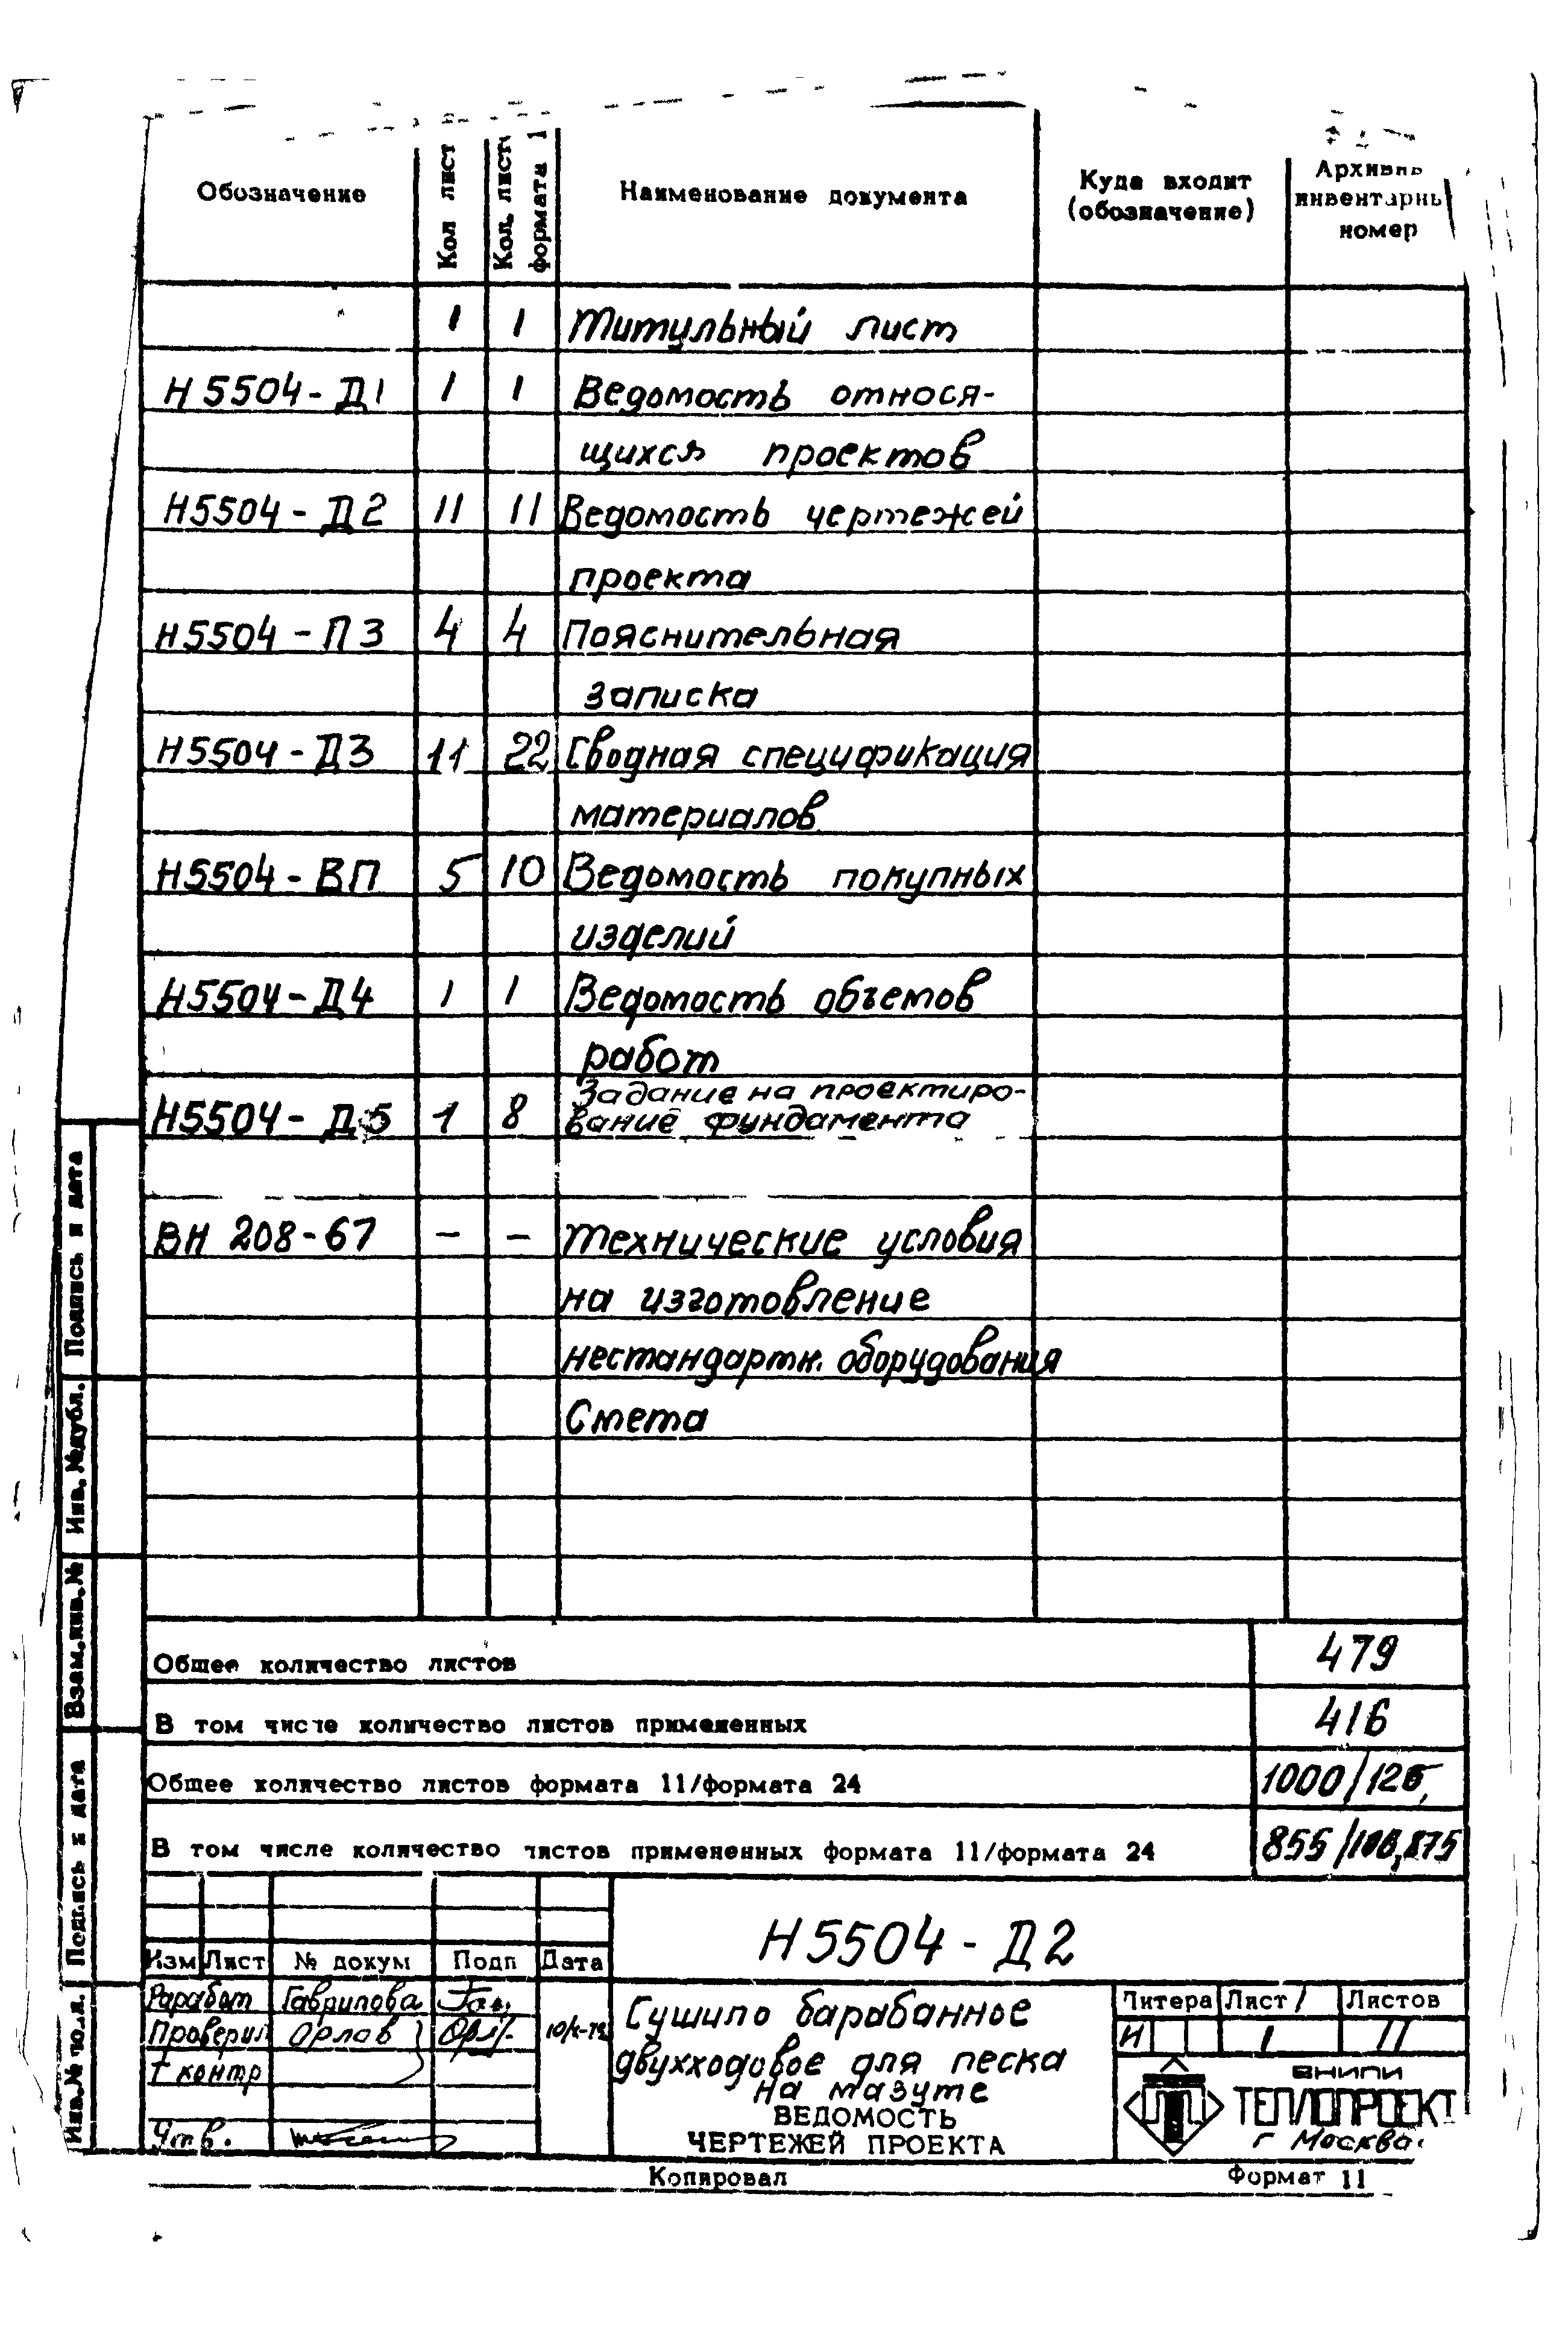 Обозначение
Кол лист
Кол. лист
формата 1
Наименование документа
Куда входит
(обозначение)
Архивнь
инвентарны
номер
1 1 Титульный лист
Н5504-Д1 1 1 Ведомость относя-
щихся проектов
Н5504-Д2 11 11 Ведомость чертежей
проекта
Н5504-ПЗ 4 4 Пояснительная
записка
Н5504-Д3 11 22 Сводная спецификация
материалов
Н5504-ВП 5 10 Ведомость покупных
изделий
Н5504-Д4 1 1 Ведомость объемов
работ
Задание на проектиро-
Н5504-Д5 1 8 вание фундамента
ВН 208-67 - - Технические условия
на изготовление
нестандартн. оборудования
Смета
Общее количество листов 479
В том числе количество листов примененных 416
Общее количество листов формата 11/формата 24 1000/125,
В том числе количество листов примененных формата 11/формата 24 855/106,875
Н5504-Д2
Изм Лист № докум Подп Дата
Разработ Гаврилова Гав.
Проверил Орлов Орл
Т контр
Утв.
Сушило барабанное
двухходовое для песка
на мазуте
ВЕДОМОСТЬ
ЧЕРТЕЖЕЙ ПРОЕКТА
Литера Лист Листов
И 1 11
ВНИПИ
ТЕПЛОПРОЕКТ
г Москва
Копировал Формат 11
Инв.№ подл. Подпись и дата Взам.инв.№ Инв.№дубл. Подпись и дата